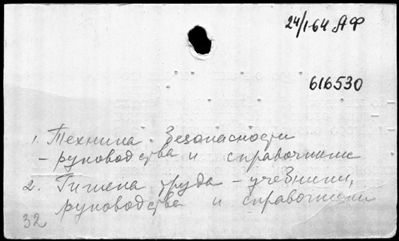 24/1-64 АФ
616530
1. Техника безопасности
- руководства и справочники
2. Гигиена труда - учебники,
руководства и справочники
32